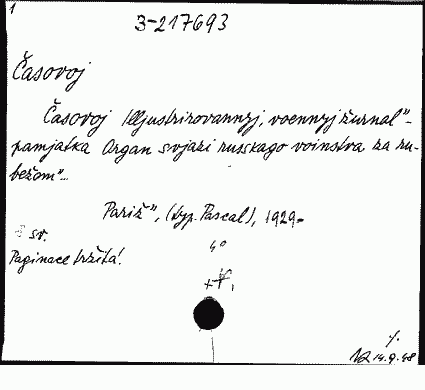 1
3-217693
Časovoj
Časovoj Illjustrirovannyj, voennyj žurnal"-
pamjatka Organ svjazi russkago voinstva za ru-
bežom"..
Pariž", (typ. Pascal), 1929-
sv.
4°
Paginace tržitá!
14.9.48